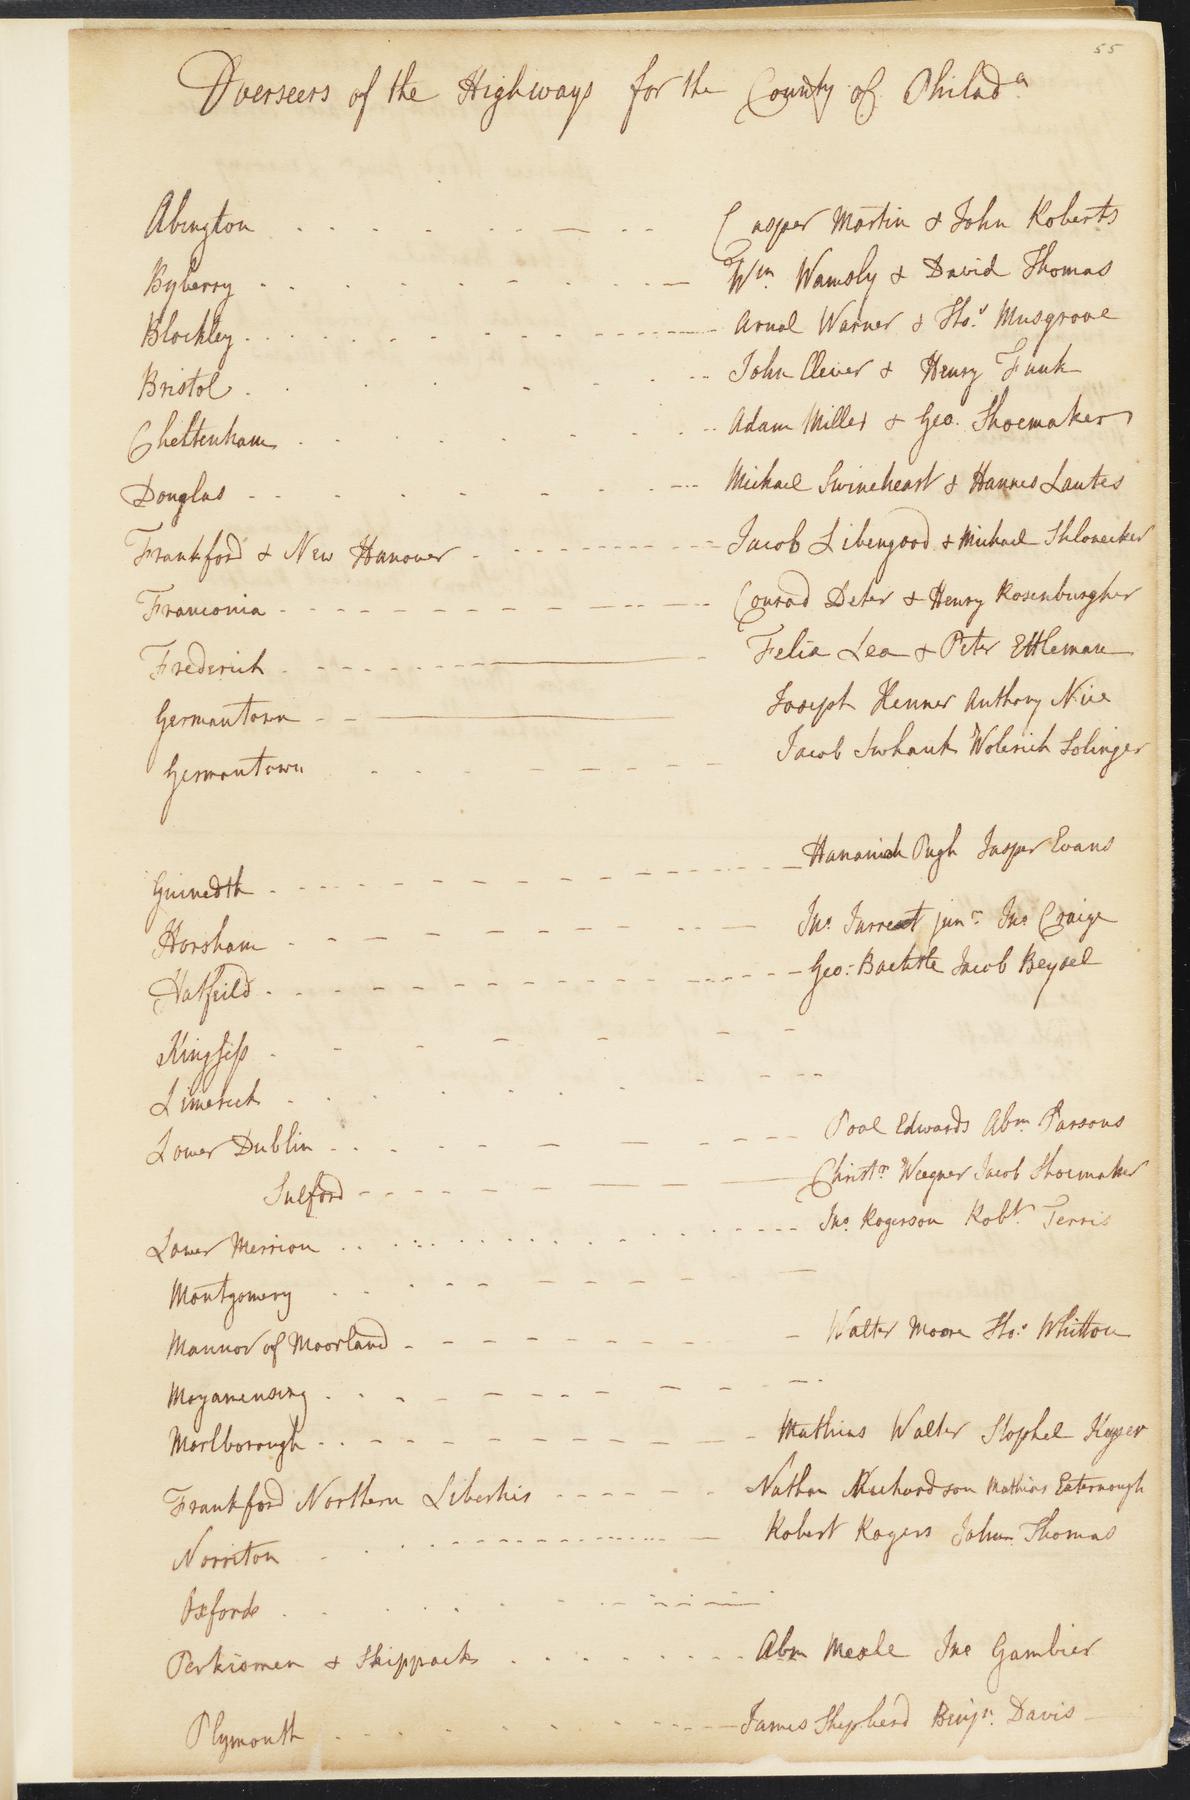 55
Overseers of the Highways for the County of Philad.a
Abington Casper Martin & John Roberts
Byberry Wm. Wamsly & David Thomas
Blockley Arnal Warner & Tho.s Musgrove
Bristol John Clever & Henry Funk
Cheltenham Adam Miller & Geo. Shoemaker
Douglas Michael Swineheart & Hannes Lautes
Frankford & New Hanover Jacob Libengood & Michael Shlonecker
Franconia Conrad Deter & Henry Rosenburgher
Frederick Felia Lea & Peter Ettleman
Germantown Joseph Kenner Anthony Nice
Germantown Jacob Swhank Wolerich Solinger
Guinedth Hananiah Pugh Jasper Evans
Horsham Jno. Jarreat junr. Jno Craige
Hatfeild Geo: Bachtle Jacob Beydel
Kingsess
Limerick
Lower Dublin Poal Edwards Abm. Parsons
Salford Christr. Weegner Jacob Shoemaker
Lower Merrion Jno. Rogerson Robt. Terris
Montgomery
Mannor of Moorland Walter Moore Tho.s Whitton
Moyamensing
Marlborough Mathias Walter Stophel Keyser
Frankford Northern Liberties Nathan Richardson Mathias Eaternough
Norriton Robert Rogers John Thomas
Oxford
Perkiomen & Skippack Abm Meale Jno Gambier
Plymouth James Shepherd Benjn. Davis